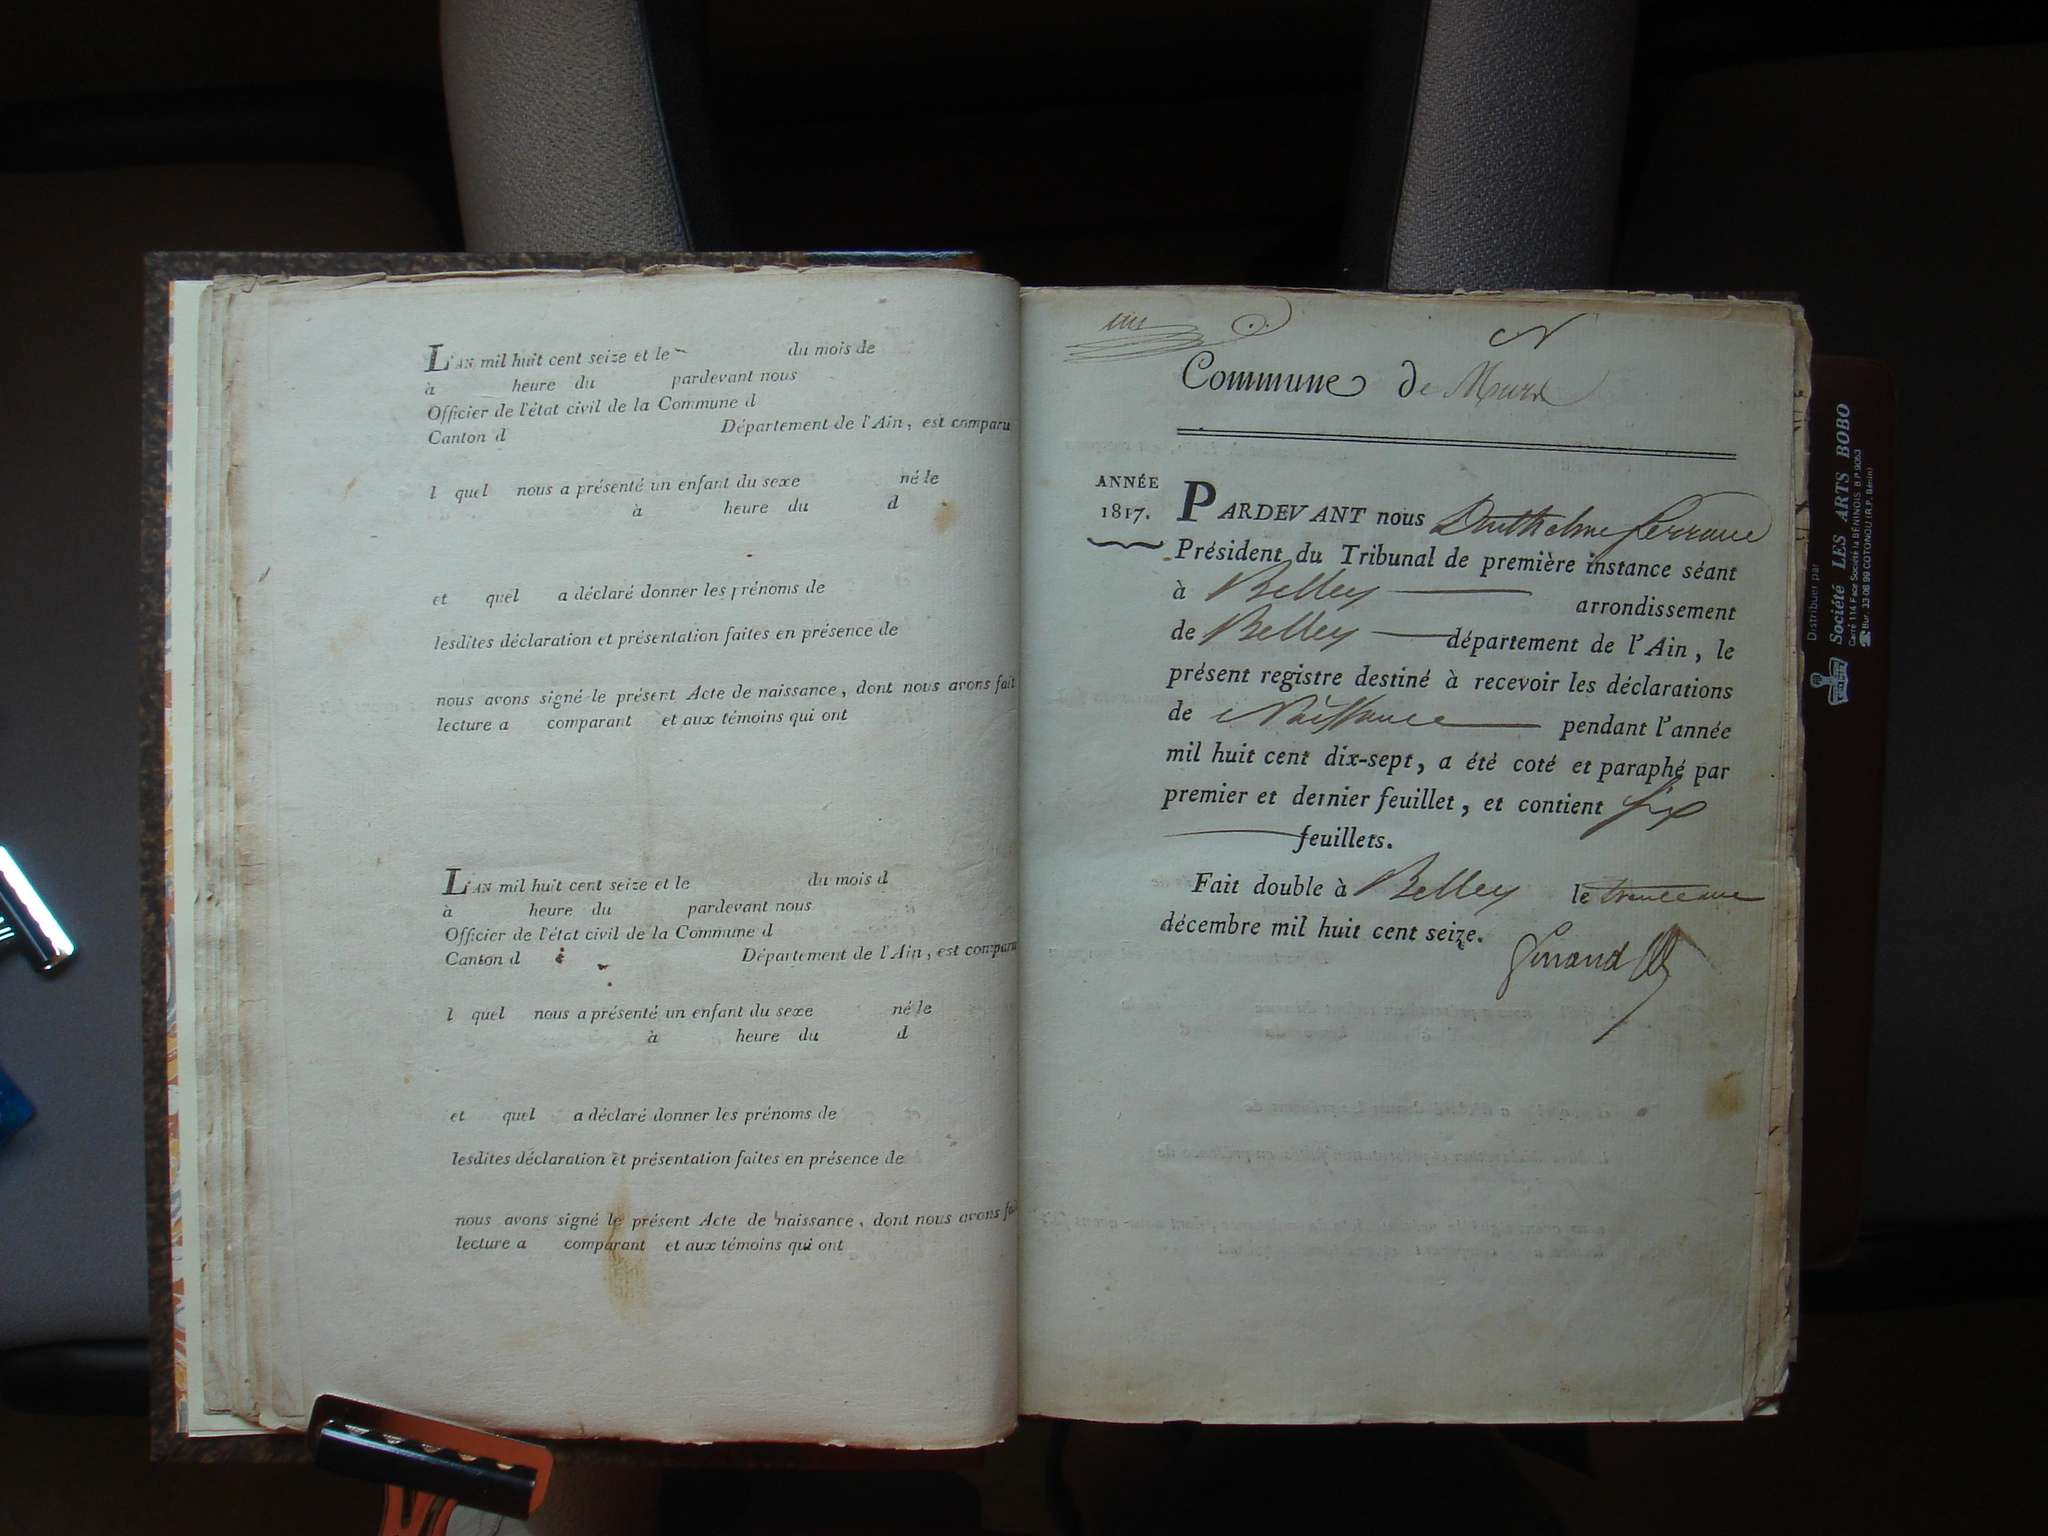 L'AN mil huit cent seize et le du mois de
à heure du pardevant nous
Officier de l'état civil de la Commune d
Canton d Département de l'Ain, est comparu
l quel nous a présenté un enfant du sexe né le
à heure du d
et quel a déclaré donner les prénoms de
lesdites déclaration et présentation faites en présence de
nous avons signé le présent Acte de naissance, dont nous avons fait
lecture a comparant et aux témoins qui ont
L'AN mil huit cent seize et le du mois d
à heure du pardevant nous
Officier de l'état civil de la Commune d
Canton d Département de l'Ain, est comparu
l quel nous a présenté un enfant du sexe né le
à heure du d
et quel a déclaré donner les prénoms de
lesdites déclaration et présentation faites en présence de
nous avons signé le présent Acte de naissance, dont nous avons fai
lecture a comparant et aux témoins qui ont
N
Commune de Murs
ANNÉE
1817.
PARDEVANT nous
Président du Tribunal de première instance séant
à Belley arrondissement
de Belley département de l'Ain, le
présent registre destiné à recevoir les déclarations
de Naissance pendant l'année
mil huit cent dix-sept, a été coté et paraphé par
premier et dernier feuillet, et contient six
feuillets.
Fait double à Belley le trente une
décembre mil huit cent seize.
Distribuer par
Société LES ARTS BOBO
Carré 114 Face Société la BÉNINOIS B.P. 9053
Bur. 33 06 99 COTONOU (R.P. Bénin)